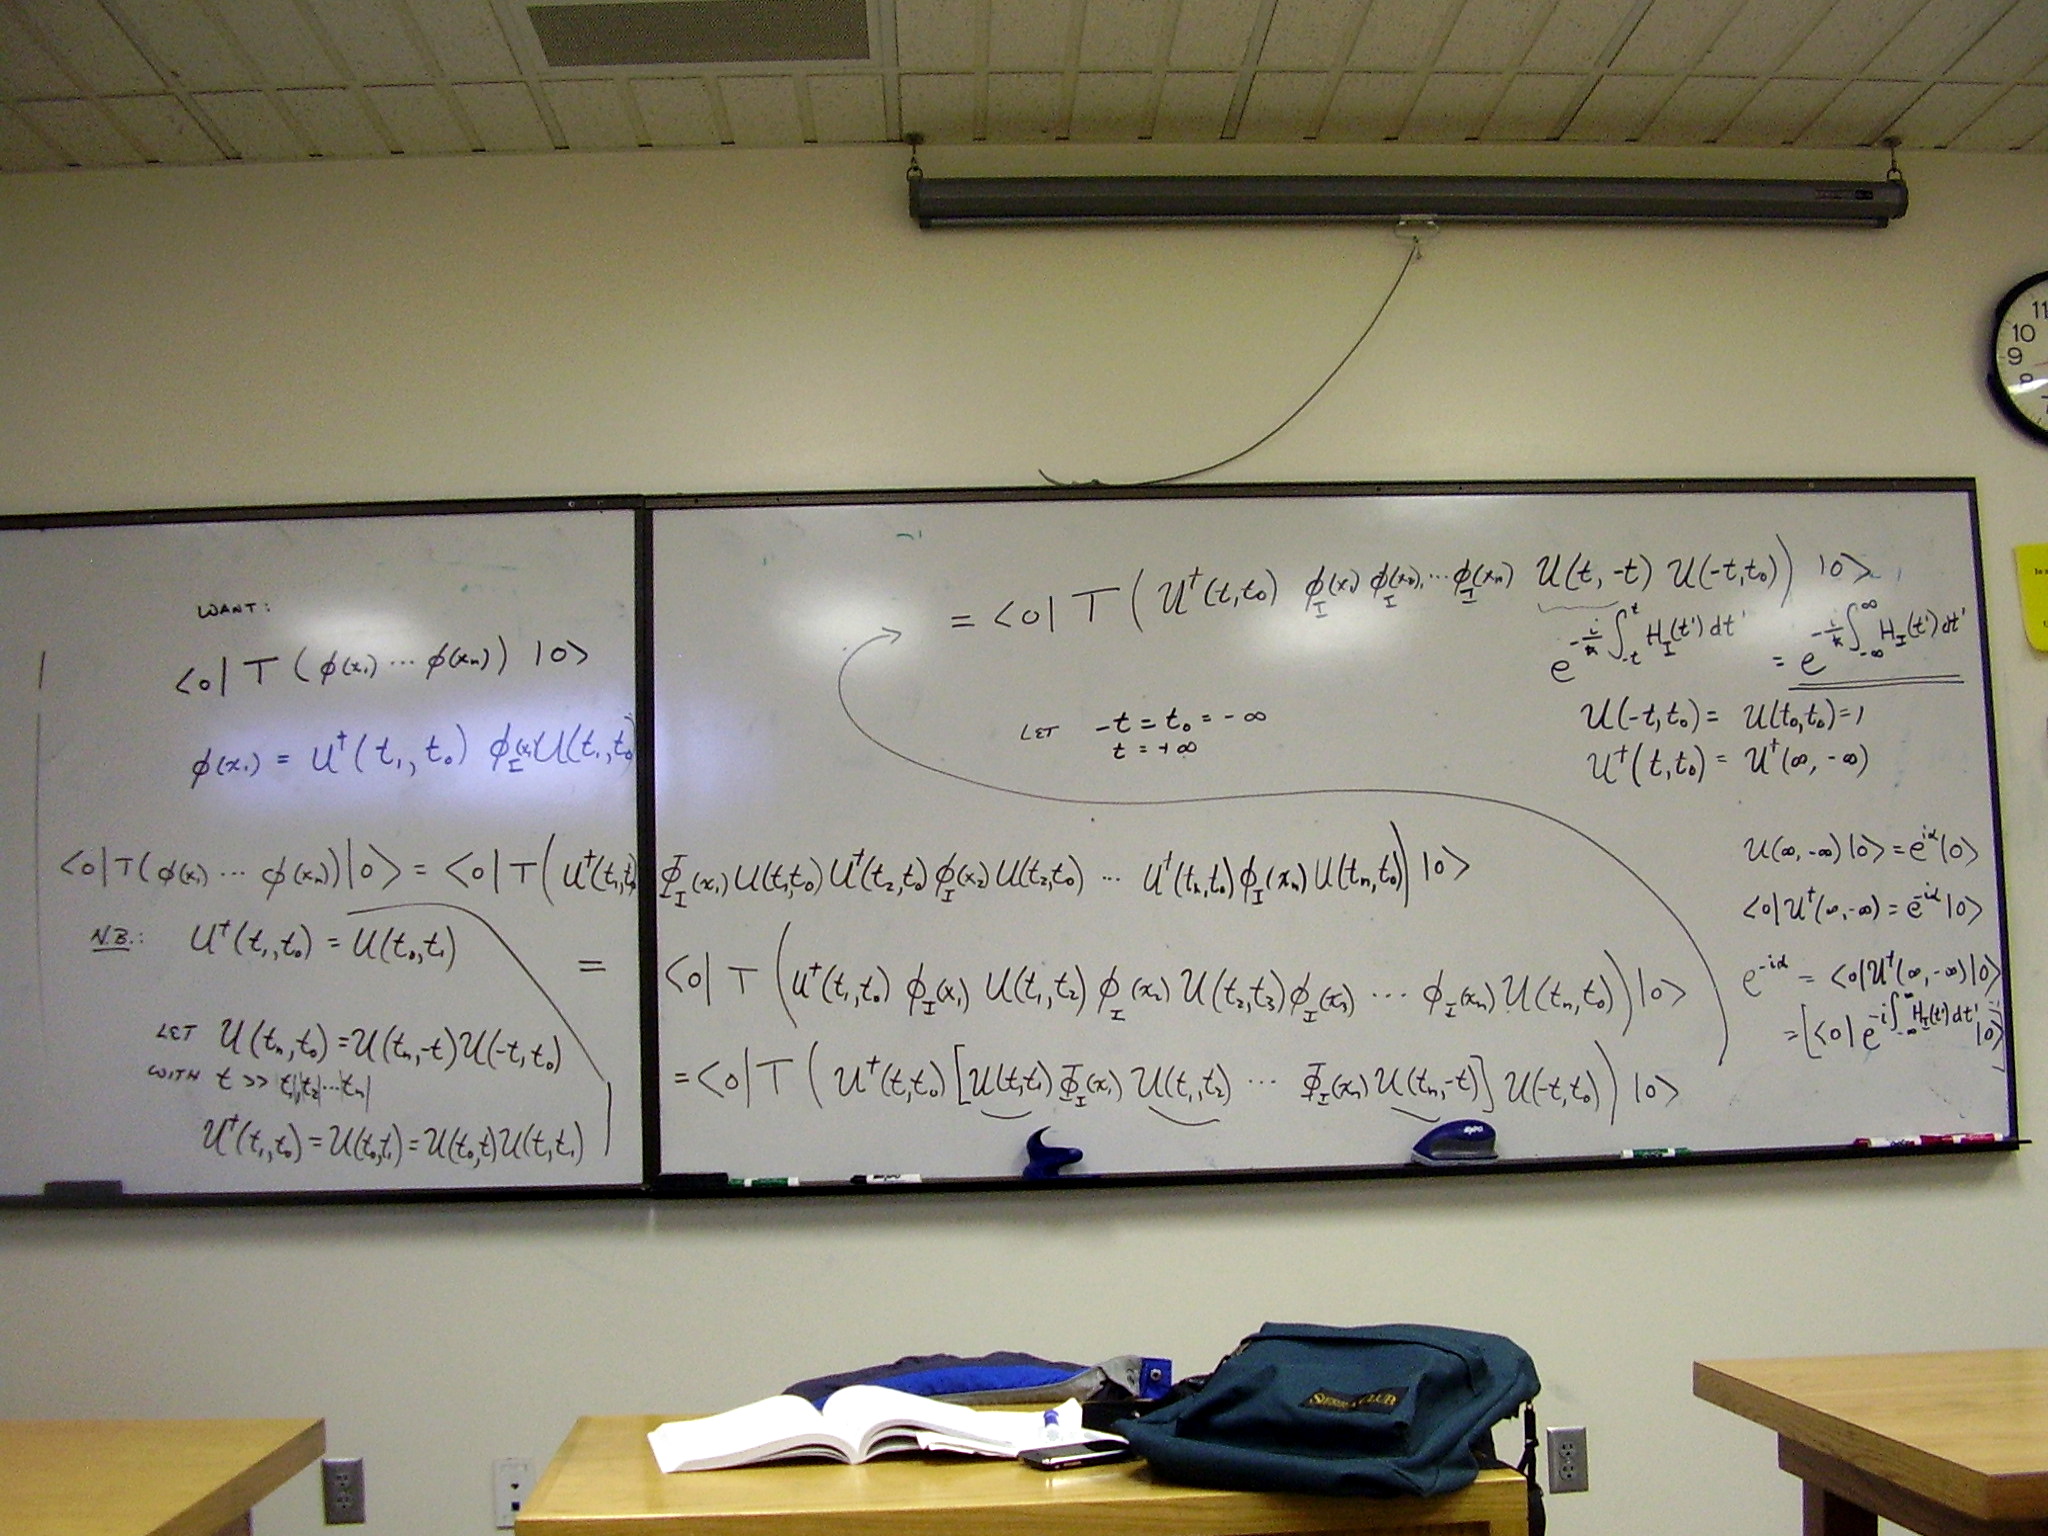 WANT:
<0| T (ϕ(x₁) ··· ϕ(xₙ)) |0>
ϕ(x₁) = U†(t₁, t₀) ϕ_I(x₁) U(t₁, t₀)
<0|T(ϕ(x₁) ··· ϕ(xₙ))|0> = <0|T(U†(t₁,t₀) Φ_I(x₁) U(t₁,t₀) U†(t₂,t₀) ϕ_I(x₂) U(t₂,t₀) ··· U†(tₙ,t₀) ϕ_I(xₙ) U(tₙ,t₀)) |0>
N.B.: U†(t₁,t₀) = U(t₀,t₁)
= <0| T (U†(t₁,t₀) ϕ_I(x₁) U(t₁,t₂) ϕ_I(x₂) U(t₂,t₃) ϕ_I(x₃) ··· ϕ_I(xₙ) U(tₙ,t₀)) |0>
LET U(tₙ,t₀) = U(tₙ,-t) U(-t,t₀)
WITH t >> t₁|,|t₂|···tₙ|
U†(t₁,t₀) = U(t₀,t₁) = U(t₀,t) U(t,t₁)
= <0|T (U†(t,t₀) [U(t,t₁) Φ_I(x₁) U(t₁,t₂) ··· Φ_I(xₙ) U(tₙ,-t)] U(-t,t₀)) |0>
= <0| T (U†(t,t₀) ϕ_I(x₁) ϕ_I(x₂)···ϕ_I(xₙ) U(t,-t) U(-t,t₀)) |0>
e^{-i/ħ ∫_{-t}^{t} H_I(t') dt'} = e^{-i/ħ ∫_{-∞}^{∞} H_I(t') dt'}
LET -t = t₀ = -∞
t = +∞
U(-t,t₀) = U(t₀,t₀) = 1
U†(t,t₀) = U†(∞, -∞)
U(∞,-∞)|0> = e^{iα}|0>
<0|U†(∞,-∞) = e^{-iα}|0>
e^{-iα} = <0|U†(∞,-∞)|0>
= [<0| e^{-i∫_{-∞}^{∞} H_I(t') dt'} |0>]^{-1}
EXPO
SIERRA CLUB
11
10
9
8
7